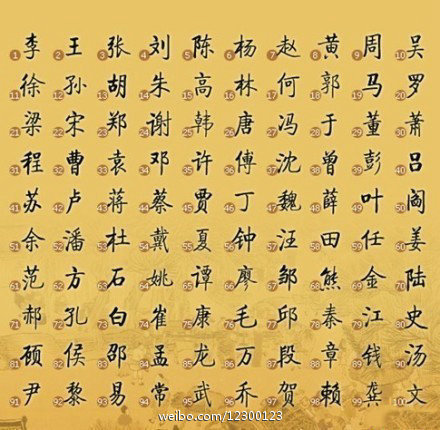 1李 2王 3张 4刘 5陈 6杨 7赵 8黄 9周 10吴
11徐 12孙 13胡 14朱 15高 16林 17何 18郭 19马 20罗
21梁 22宋 23郑 24谢 25韩 26唐 27冯 28于 29董 30萧
31程 32曹 33袁 34邓 35许 36傅 37沈 38曾 39彭 40吕
41苏 42卢 43蒋 44蔡 45贾 46丁 47魏 48薛 49叶 50阎
51余 52潘 53杜 54戴 55夏 56钟 57汪 58田 59任 60姜
61范 62方 63石 64姚 65谭 66廖 67邹 68熊 69金 70陆
71郝 72孔 73白 74崔 75康 76毛 77邱 78秦 79江 80史
81顾 82侯 83邵 84孟 85龙 86万 87段 88章 89钱 90汤
91尹 92黎 93易 94常 95武 96乔 97贺 98赖 99龚 100文
weibo.com/12300123